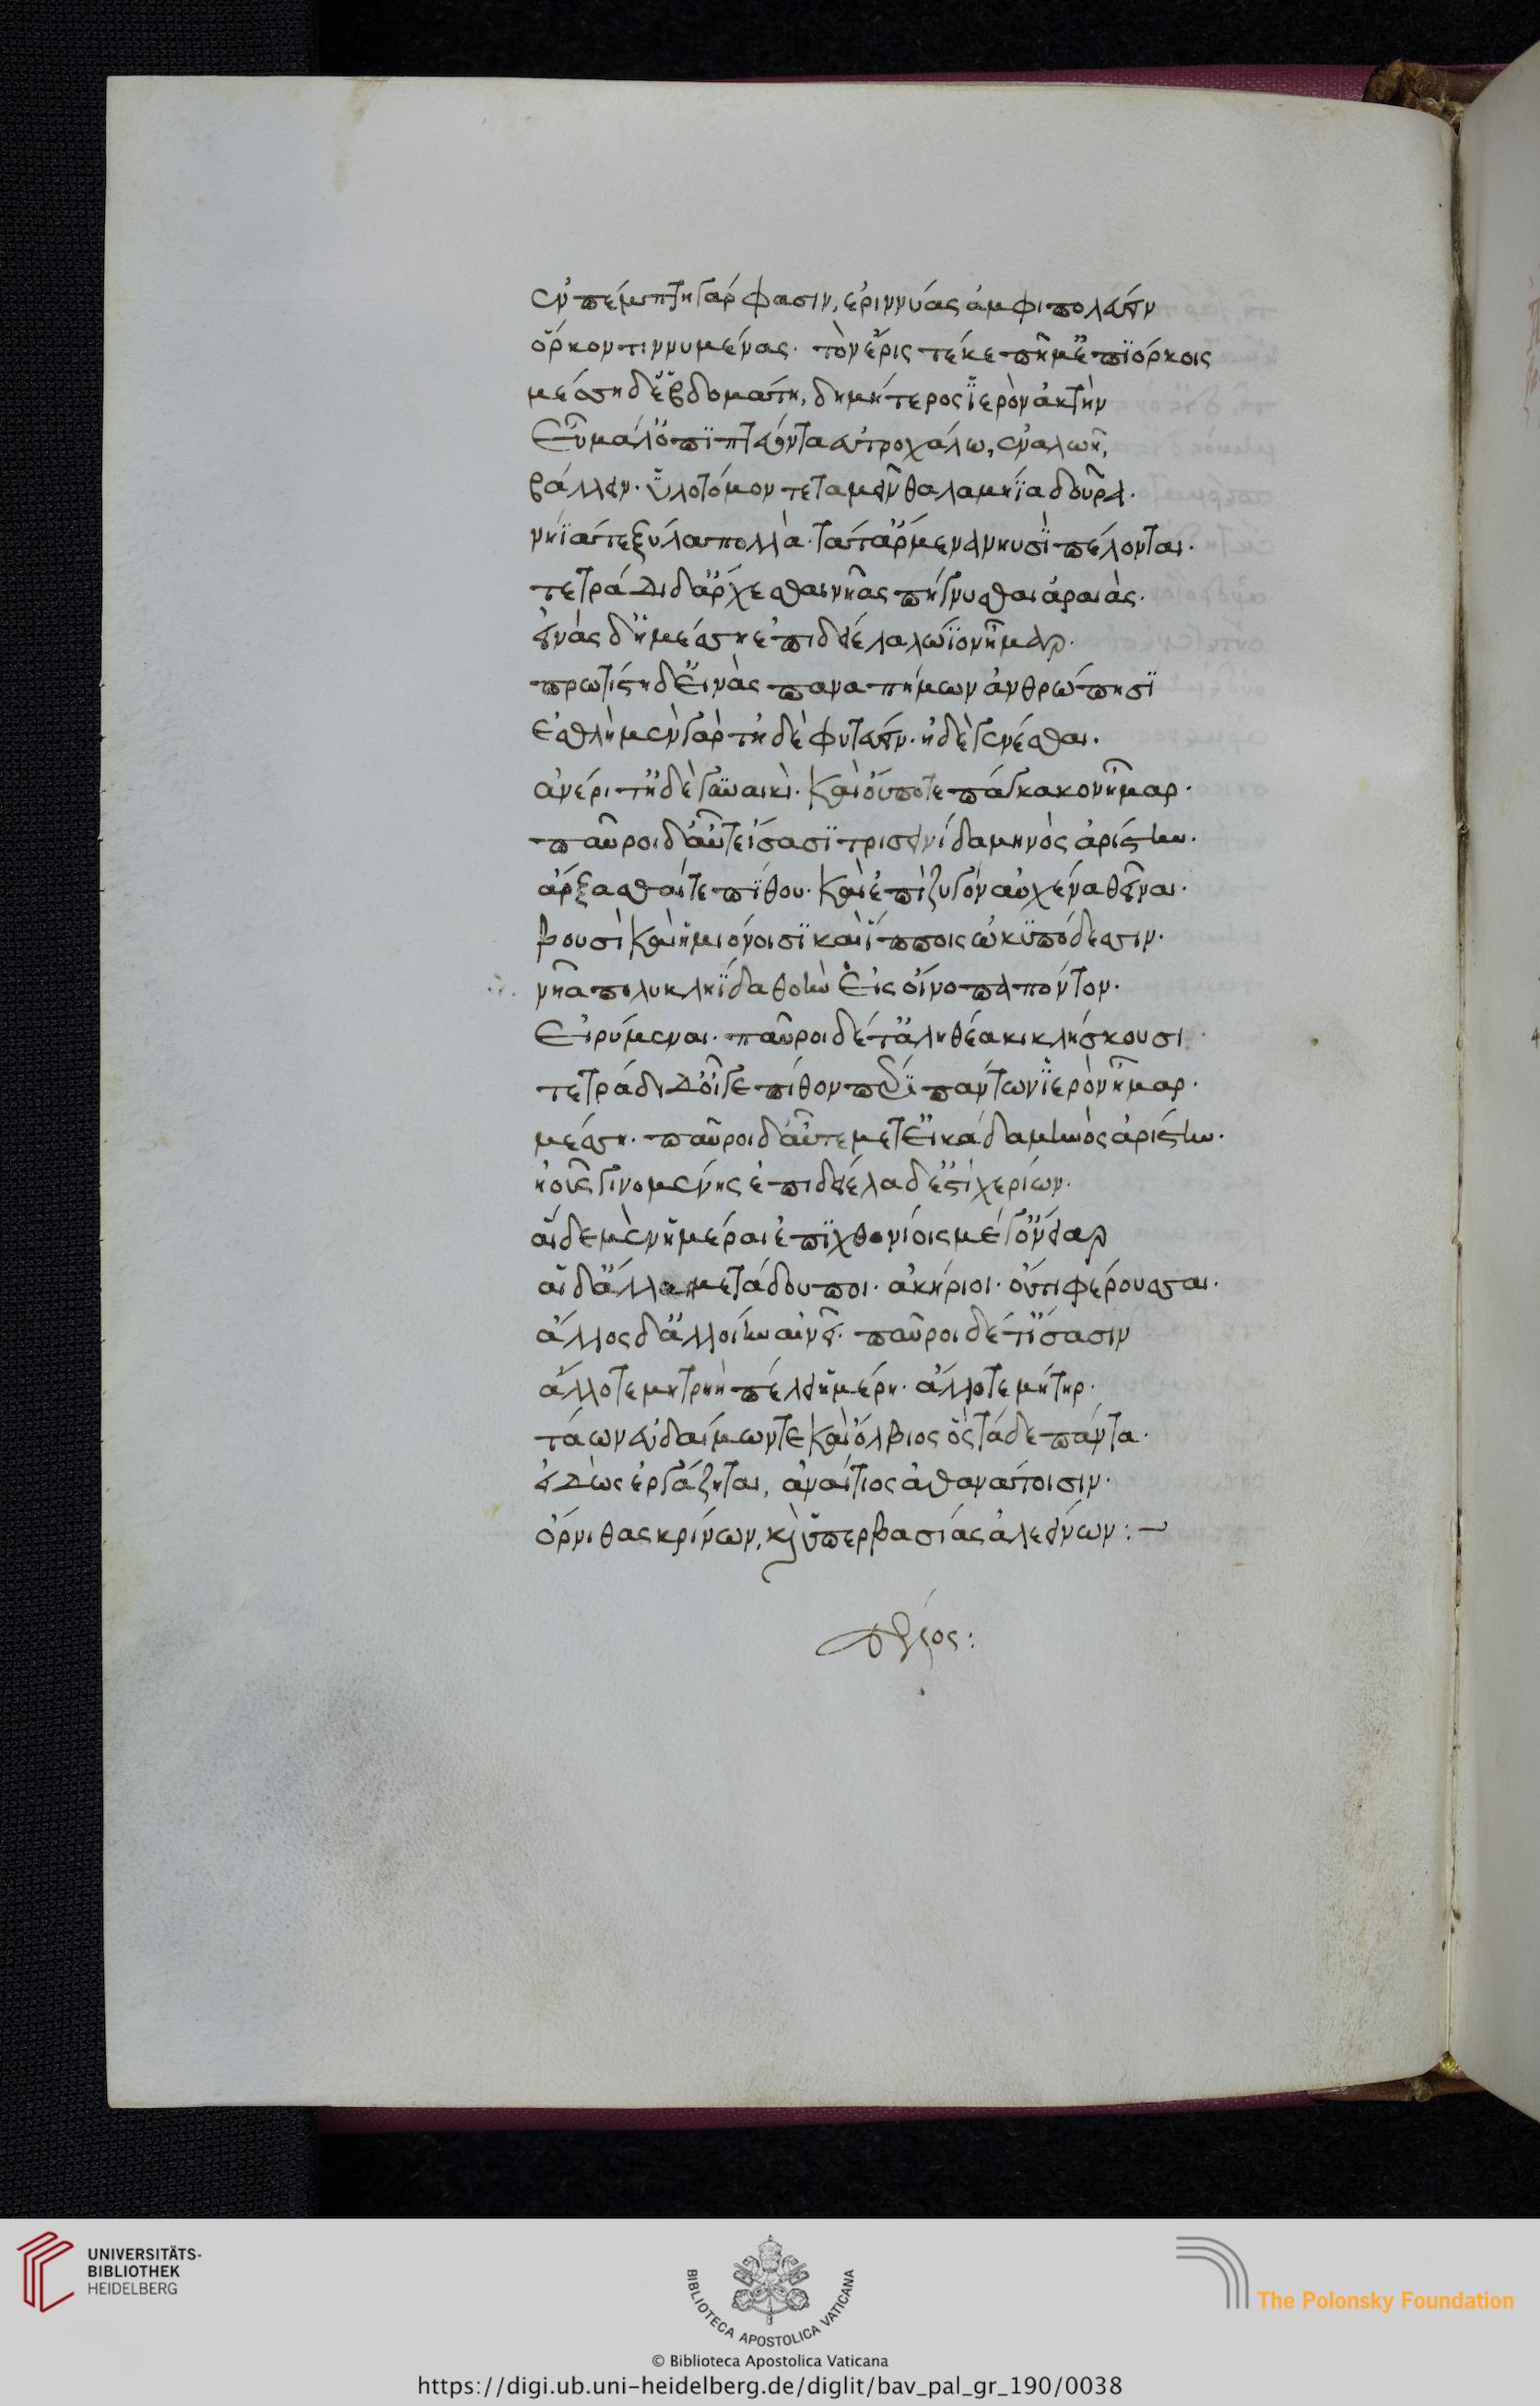 ἐν πέμπτη γάρ φασιν, ἐριννύας ἀμφιπολεύειν
ὅρκον τιννυμένας. τὸν ἔρις τέκε πῆμ' ἐπϊόρκοις
μέσση δ' ἑβδομάτη, δημήτερος ἱερὸν ἀκτὴν
εὖ μάλ' ὀπϊπτεύοντα εὐτροχάλω, ἐν ἀλωῆ,
βάλλειν. ὑλοτόμον τε ταμεῖν θαλαμηΐα δοῦρα.
νηΐά τε ξύλα πολλὰ. τά τ' ἄρμενα νηυσὶ πέλονται.
τετράδι δ' ἄρχεσθαι νῆας πήγνυσθαι ἀραιάς.
εἰνὰς δ' ἡ μέσση ἐπι δείελα λώϊον ἦμαρ.
πρωτίστη δ' εἰνὰς παναπήμων ἀνθρώπησϊ
ἐσθλὴ μὲν γὰρ τῇ δὲ φυτεύειν. ἠδὲ γενέσθαι.
ἀνέρι τ' ἠδὲ γυναικὶ. καὶ οὔποτε πάγκακον ἦμαρ.
παῦροι δ' αὖτε ἴσασϊ τρισεινίδα μηνὸς ἀρίστην.
ἄρξασθαί τε πϊθου. καὶ ἐπὶ ζυγὸν αὐχένα θεῖναι.
βουσὶ καὶ ἡμιόνοισϊ καὶ ἵπποις ὠκϋπόδεσσιν.
νῆα πολυκλήϊδα θοὴν εἰς οἴνοπα πόντον.
εἰρύμεναι. παῦροι δέ τ' ἀληθέα κικλήσκουσι
τετράδι δ' οἶγε πίθον περὶ πάντων ἱερὸν ἦμαρ.
μέσση. παῦροι δ' αὖτε μετ' εἰκάδα μηνὸς ἀρίστην.
ἠοῦς γινομένης ἐπι δείελα δ' ἐστὶ χερίων.
αἵδε μὲν ἡμέραι ἐπϊχθονίοις μέγ' ὄνειαρ
αἱ δ' ἄλλαι μετάδουποι. ἀκήριοι. οὔτι φέρουσαι.
ἄλλος δ' ἀλλοίην αἰνεῖ. παῦροι δέ τ' ἴσασιν
ἄλλοτε μητρηὴ πέλει ἡμέρη. ἄλλοτε μήτηρ.
τάων εὐδαίμων τε καὶ ὄλβιος ὃς τάδε πάντα.
εἰδὼς ἐργάζηται, ἀναίτιος ἀθανάτοισιν.
ὄρνιθας κρίνων, καὶ ὑπερβασίας ἀλεείνων:—
τέλος:
UNIVERSITÄTS-
BIBLIOTHEK
HEIDELBERG
BIBLIOTECA APOSTOLICA VATICANA
The Polonsky Foundation
© Biblioteca Apostolica Vaticana
https://digi.ub.uni-heidelberg.de/diglit/bav_pal_gr_190/0038